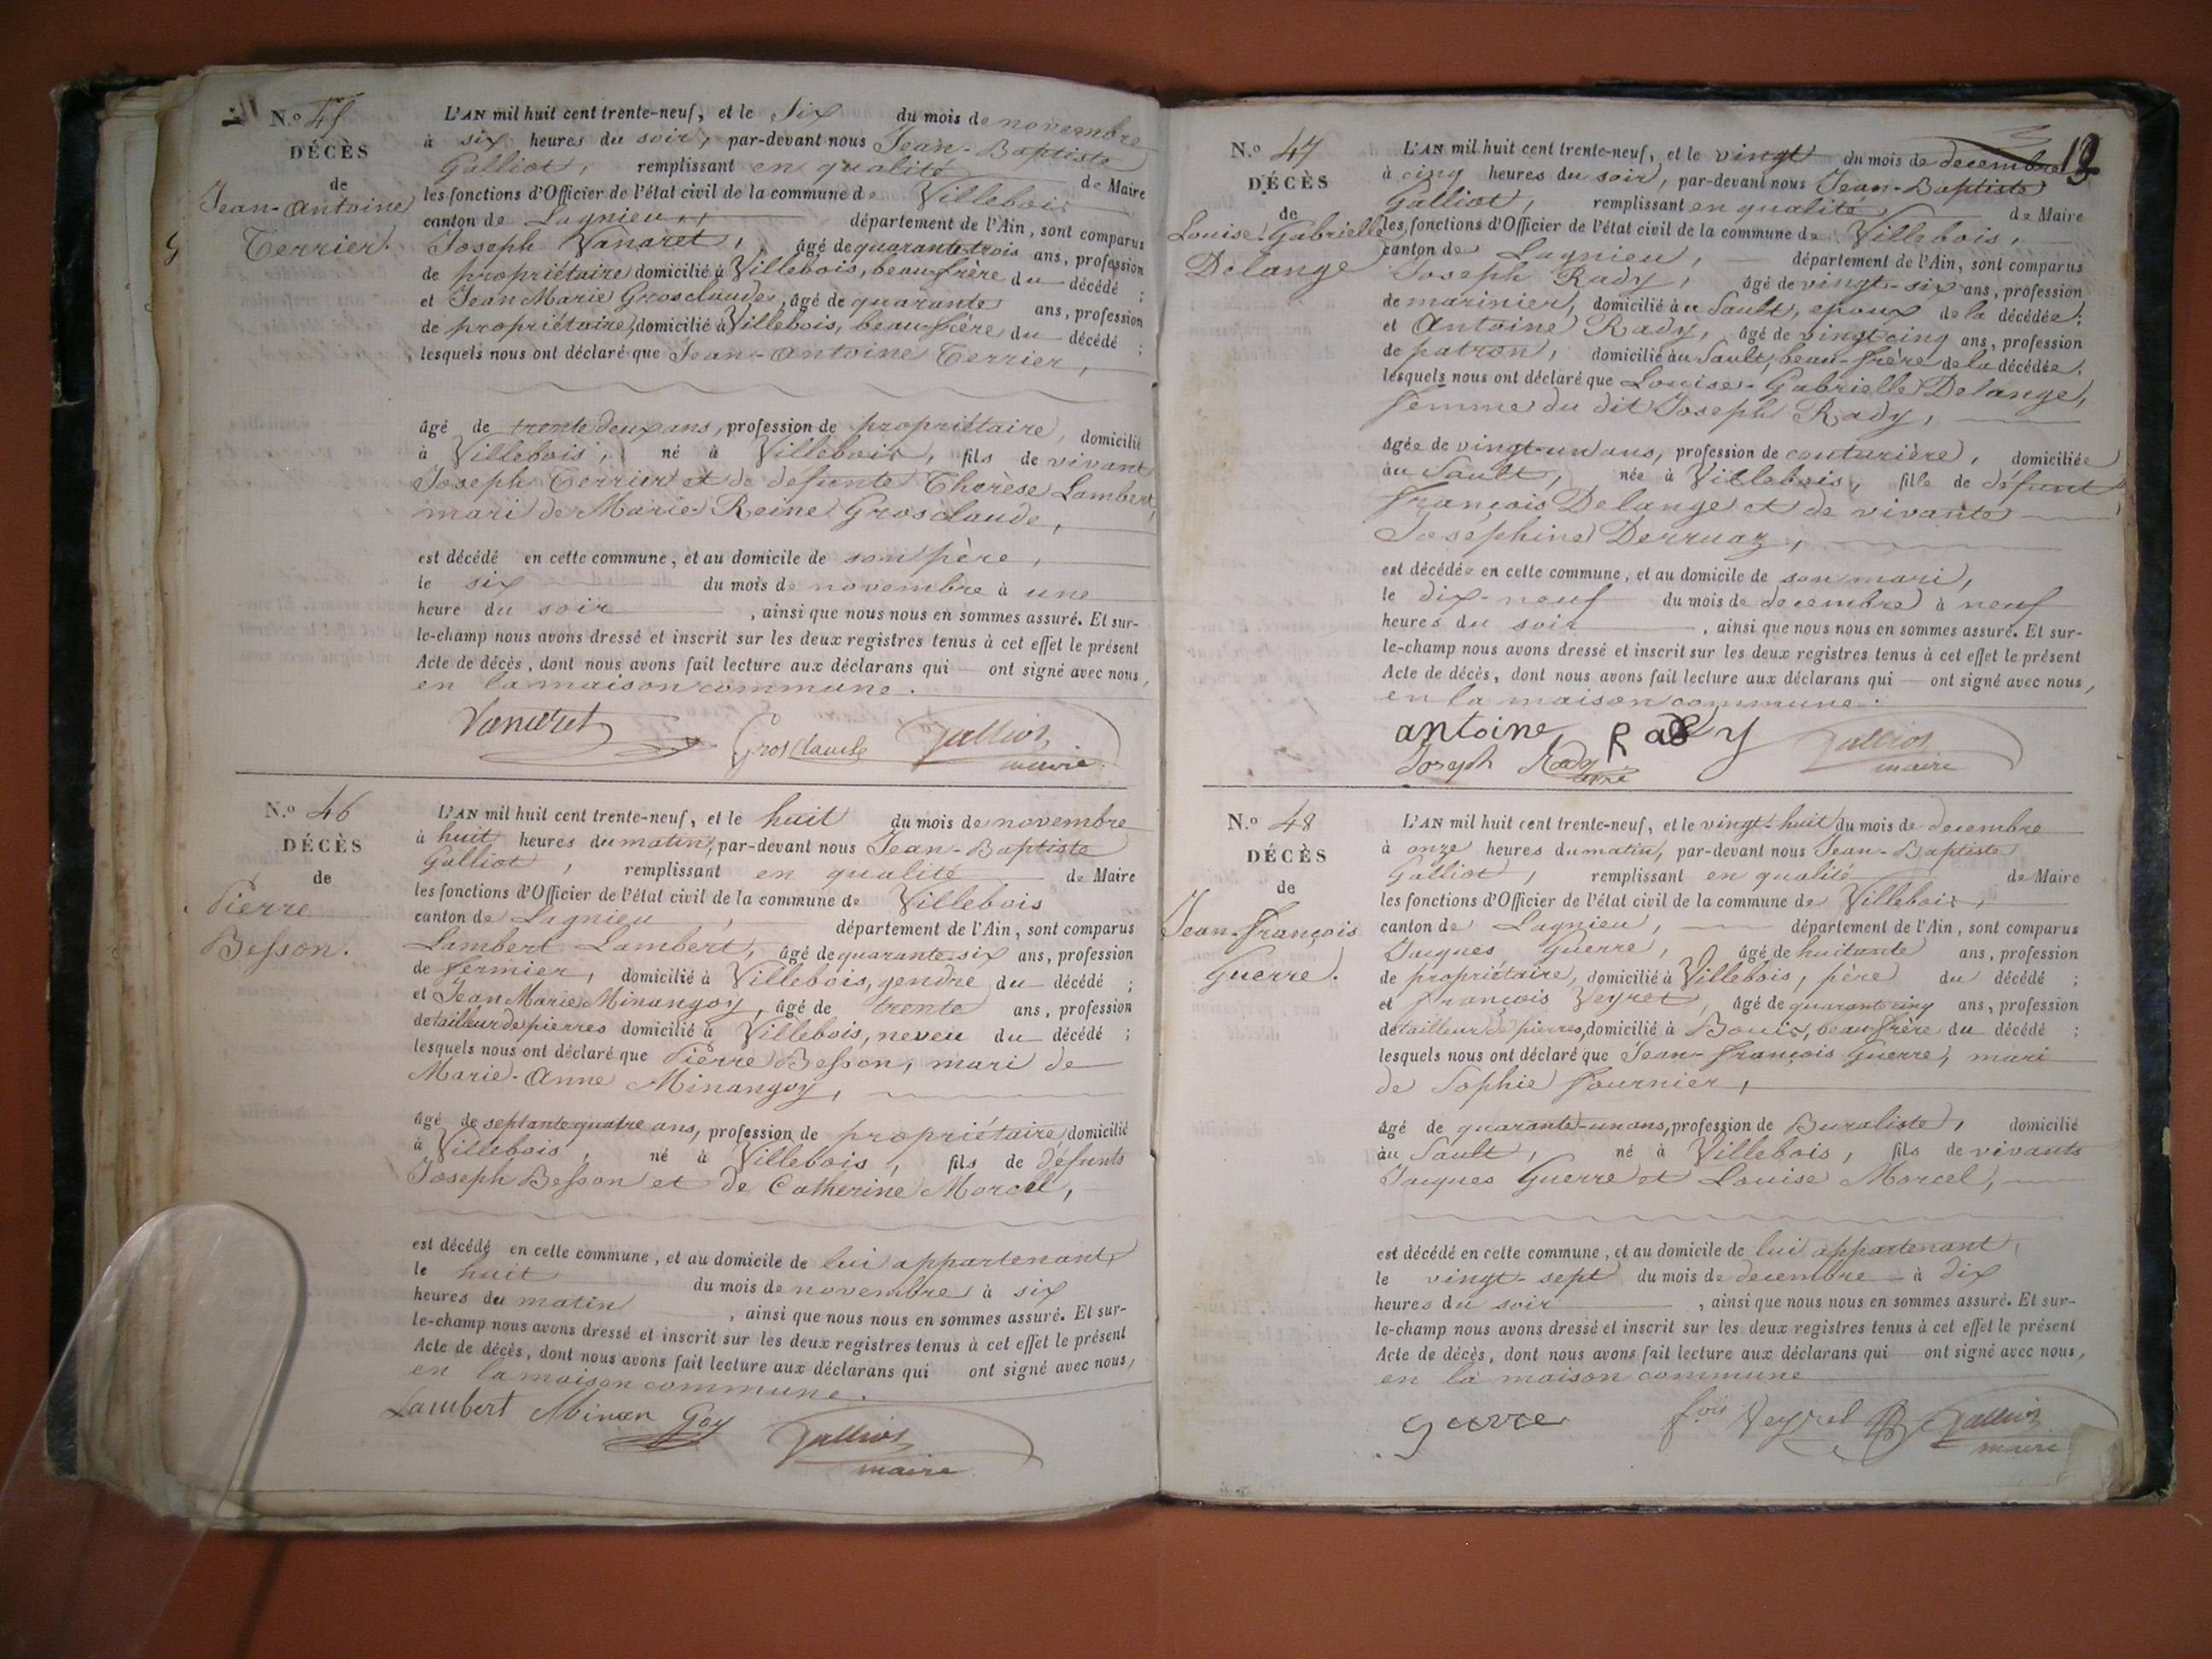 N.º 45
DÉCÈS
de
Jean-Antoine
Terrier.
L'AN mil huit cent trente-neuf, et le Six du mois de novembre
à six heures du soir, par-devant nous Jean-Baptiste
Galliot, remplissant en qualité de Maire
les fonctions d'Officier de l'état civil de la commune de Villebois
canton de Lagnieu, département de l'Ain, sont comparus
Joseph Vanaret, âgé de quarante trois ans, profession
de propriétaire domicilié à Villebois, beau-frère du décédé ;
et Jean Marie Grosclaude, âgé de quarante ans, profession
de propriétaire, domicilié à Villebois, beau-frère du décédé ;
lesquels nous ont déclaré que Jean-Antoine Terrier,
âgé de trente deux ans, profession de propriétaire, domicilié
à Villebois, né à Villebois, fils de vivant
Joseph Terrier et de défunte Thérèse Lambert,
mari de Marie Reine Grosclaude,
est décédé en cette commune, et au domicile de son père,
le six du mois de novembre à une
heure du soir, ainsi que nous nous en sommes assuré. Et sur-
le-champ nous avons dressé et inscrit sur les deux registres tenus à cet effet le présent
Acte de décès, dont nous avons fait lecture aux déclarans qui ont signé avec nous,
en la maison commune.
Vanaret Grosclaude Galliot
maire
N.º 46
DÉCÈS
de
Pierre
Besson.
L'AN mil huit cent trente-neuf, et le huit du mois de novembre
à huit heures du matin, par-devant nous Jean-Baptiste
Galliot, remplissant en qualité de Maire
les fonctions d'Officier de l'état civil de la commune de Villebois
canton de Lagnieu, département de l'Ain, sont comparus
Lambert Lambert, âgé de quarante-six ans, profession
de fermier, domicilié à Villebois, gendre du décédé ;
et Jean Marie Minangoy, âgé de trente ans, profession
de tailleur de pierres domicilié à Villebois, neveu du décédé ;
lesquels nous ont déclaré que Pierre Besson, mari de
Marie-Anne Minangoy,
âgé de septante quatre ans, profession de propriétaire, domicilié
à Villebois, né à Villebois, fils de défunts
Joseph Besson et de Catherine Marcel,
est décédé en cette commune, et au domicile de lui appartenant,
le huit du mois de novembre à six
heures du matin, ainsi que nous nous en sommes assuré. Et sur-
le-champ nous avons dressé et inscrit sur les deux registres tenus à cet effet le présent
Acte de décès, dont nous avons fait lecture aux déclarans qui ont signé avec nous,
en la maison commune.
Lambert Minan Goy Galliot
maire
N.º 47
DÉCÈS
de
Louise-Gabrielle
Delange
L'AN mil huit cent trente-neuf, et le vingt du mois de decembre
à cinq heures du soir, par-devant nous Jean-Baptiste
Galliot, remplissant en qualité de Maire
les fonctions d'Officier de l'état civil de la commune de Villebois,
canton de Lagnieu, département de l'Ain, sont comparus
Joseph Rady, âgé de vingt-six ans, profession
de marinier, domicilié au Sault, epoux de la décédée ;
et Antoine Rady, âgé de vingt cinq ans, profession
de patron, domicilié au Sault, beau-frère de la décédée ;
lesquels nous ont déclaré que Louise-Gabrielle Delange,
femme du dit Joseph Rady,
âgée de vingt-un ans, profession de couturière, domiciliée
au Sault, née à Villebois, fille de défunt
François Delange et de vivante
Joséphine Derruaz,
est décédée en cette commune, et au domicile de son mari,
le dix-neuf du mois de decembre à neuf
heures du soir, ainsi que nous nous en sommes assuré. Et sur-
le-champ nous avons dressé et inscrit sur les deux registres tenus à cet effet le présent
Acte de décès, dont nous avons fait lecture aux déclarans qui ont signé avec nous,
en la maison commune.
antoine Rady Galliot
Joseph Rady maire
N.º 48
DÉCÈS
de
Jean-François
Guerre.
L'AN mil huit cent trente-neuf, et le vingt-huit du mois de decembre
à onze heures du matin, par-devant nous Jean-Baptiste
Galliot, remplissant en qualité de Maire
les fonctions d'Officier de l'état civil de la commune de Villebois,
canton de Lagnieu, département de l'Ain, sont comparus
Jacques Guerre, âgé de huitante ans, profession
de propriétaire, domicilié à Villebois, père du décédé ;
et François Veyret, âgé de quarante cinq ans, profession
de tailleur de pierres, domicilié à Bouis, beau-frère du décédé ;
lesquels nous ont déclaré que Jean-François Guerre, mari
de Sophie Fournier,
âgé de quarante-un ans, profession de Buraliste, domicilié
au Sault, né à Villebois, fils de vivants
Jacques Guerre et Louise Marcel,
est décédé en cette commune, et au domicile de lui appartenant,
le vingt-sept du mois de decembre à dix
heures du soir, ainsi que nous nous en sommes assuré. Et sur-
le-champ nous avons dressé et inscrit sur les deux registres tenus à cet effet le présent
Acte de décès, dont nous avons fait lecture aux déclarans qui ont signé avec nous,
en la maison commune
guerre f.ois Veyret Galliot
maire